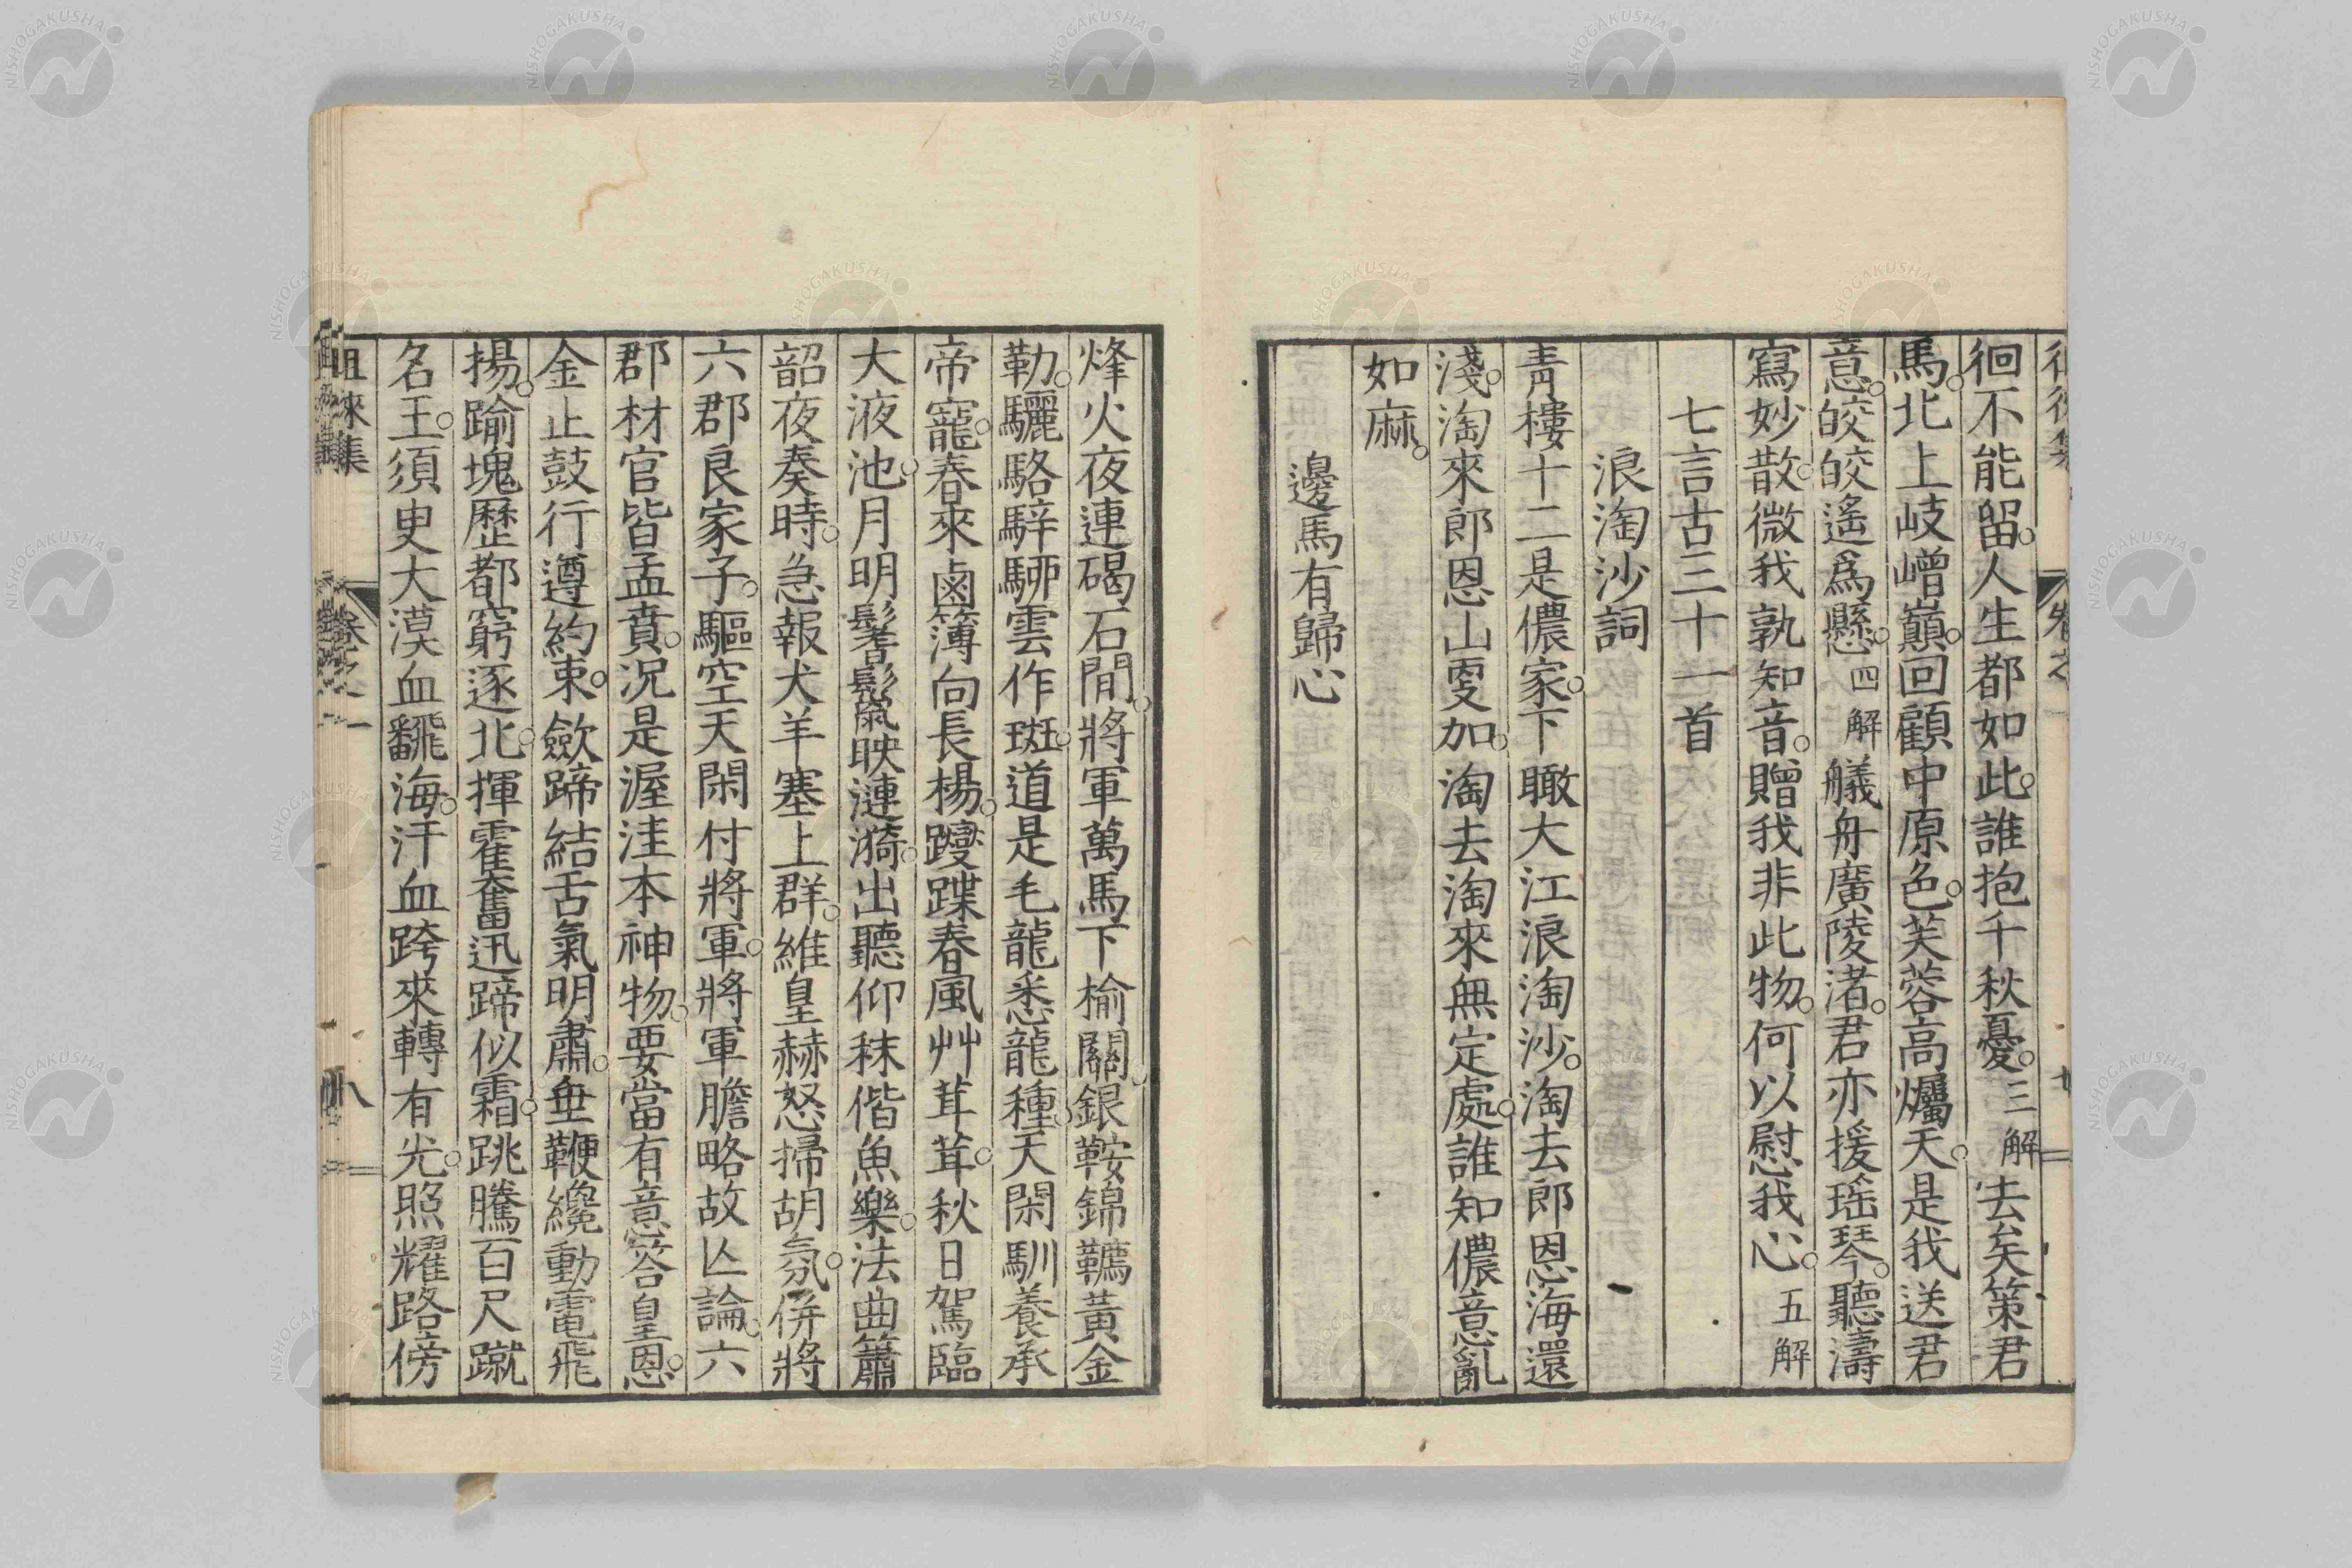 徊不能留。人生都如此。誰抱千秋憂。三解 去矣策君
馬。北上岐嶒巔。回顧中原色。芙蓉高爥天。是我送君
意。皎皎遙爲懸。四解 艤舟廣陵渚。君亦援瑶琴。聽濤
寫妙散。微我孰知音。贈我非此物。何以慰我心。五解
七言古三十一首
浪淘沙詞
靑樓十二是儂家。下瞰大江浪淘沙。淘去郎恩海還
淺。淘來郎恩山更加。淘去淘來無定處。誰知儂意亂
如麻。
邊馬有歸心
烽火夜連碣石間。將軍萬馬下榆關。銀鞍錦韉黃金
勒。驪駱騂駵雲作斑。道是毛龍悉龍種。天閑馴養承
帝寵。春來鹵簿向長楊。躞蹀春風艸茸茸。秋日駕臨
大液池。月明鬐鬛映漣漪。出聽仰秣偕魚樂。法曲簫
韶夜奏時。急報犬羊塞上群。維皇赫怒掃胡氛。併將
六郡良家子。驅空天閑付將軍。將軍膽略故亾論。六
郡材官皆孟賁。況是渥洼本神物。要當有意答皇恩。
金止鼓行遵約束。歛蹄結舌氣明肅。垂鞭纔動電飛
揚。踰塊歷都窮逐北。揮霍奮迅蹄似霜。跳騰百尺蹴
名王。須臾大漠血飜海。汗血跨來轉有光。照耀路傍
徂徠集 卷之一 八